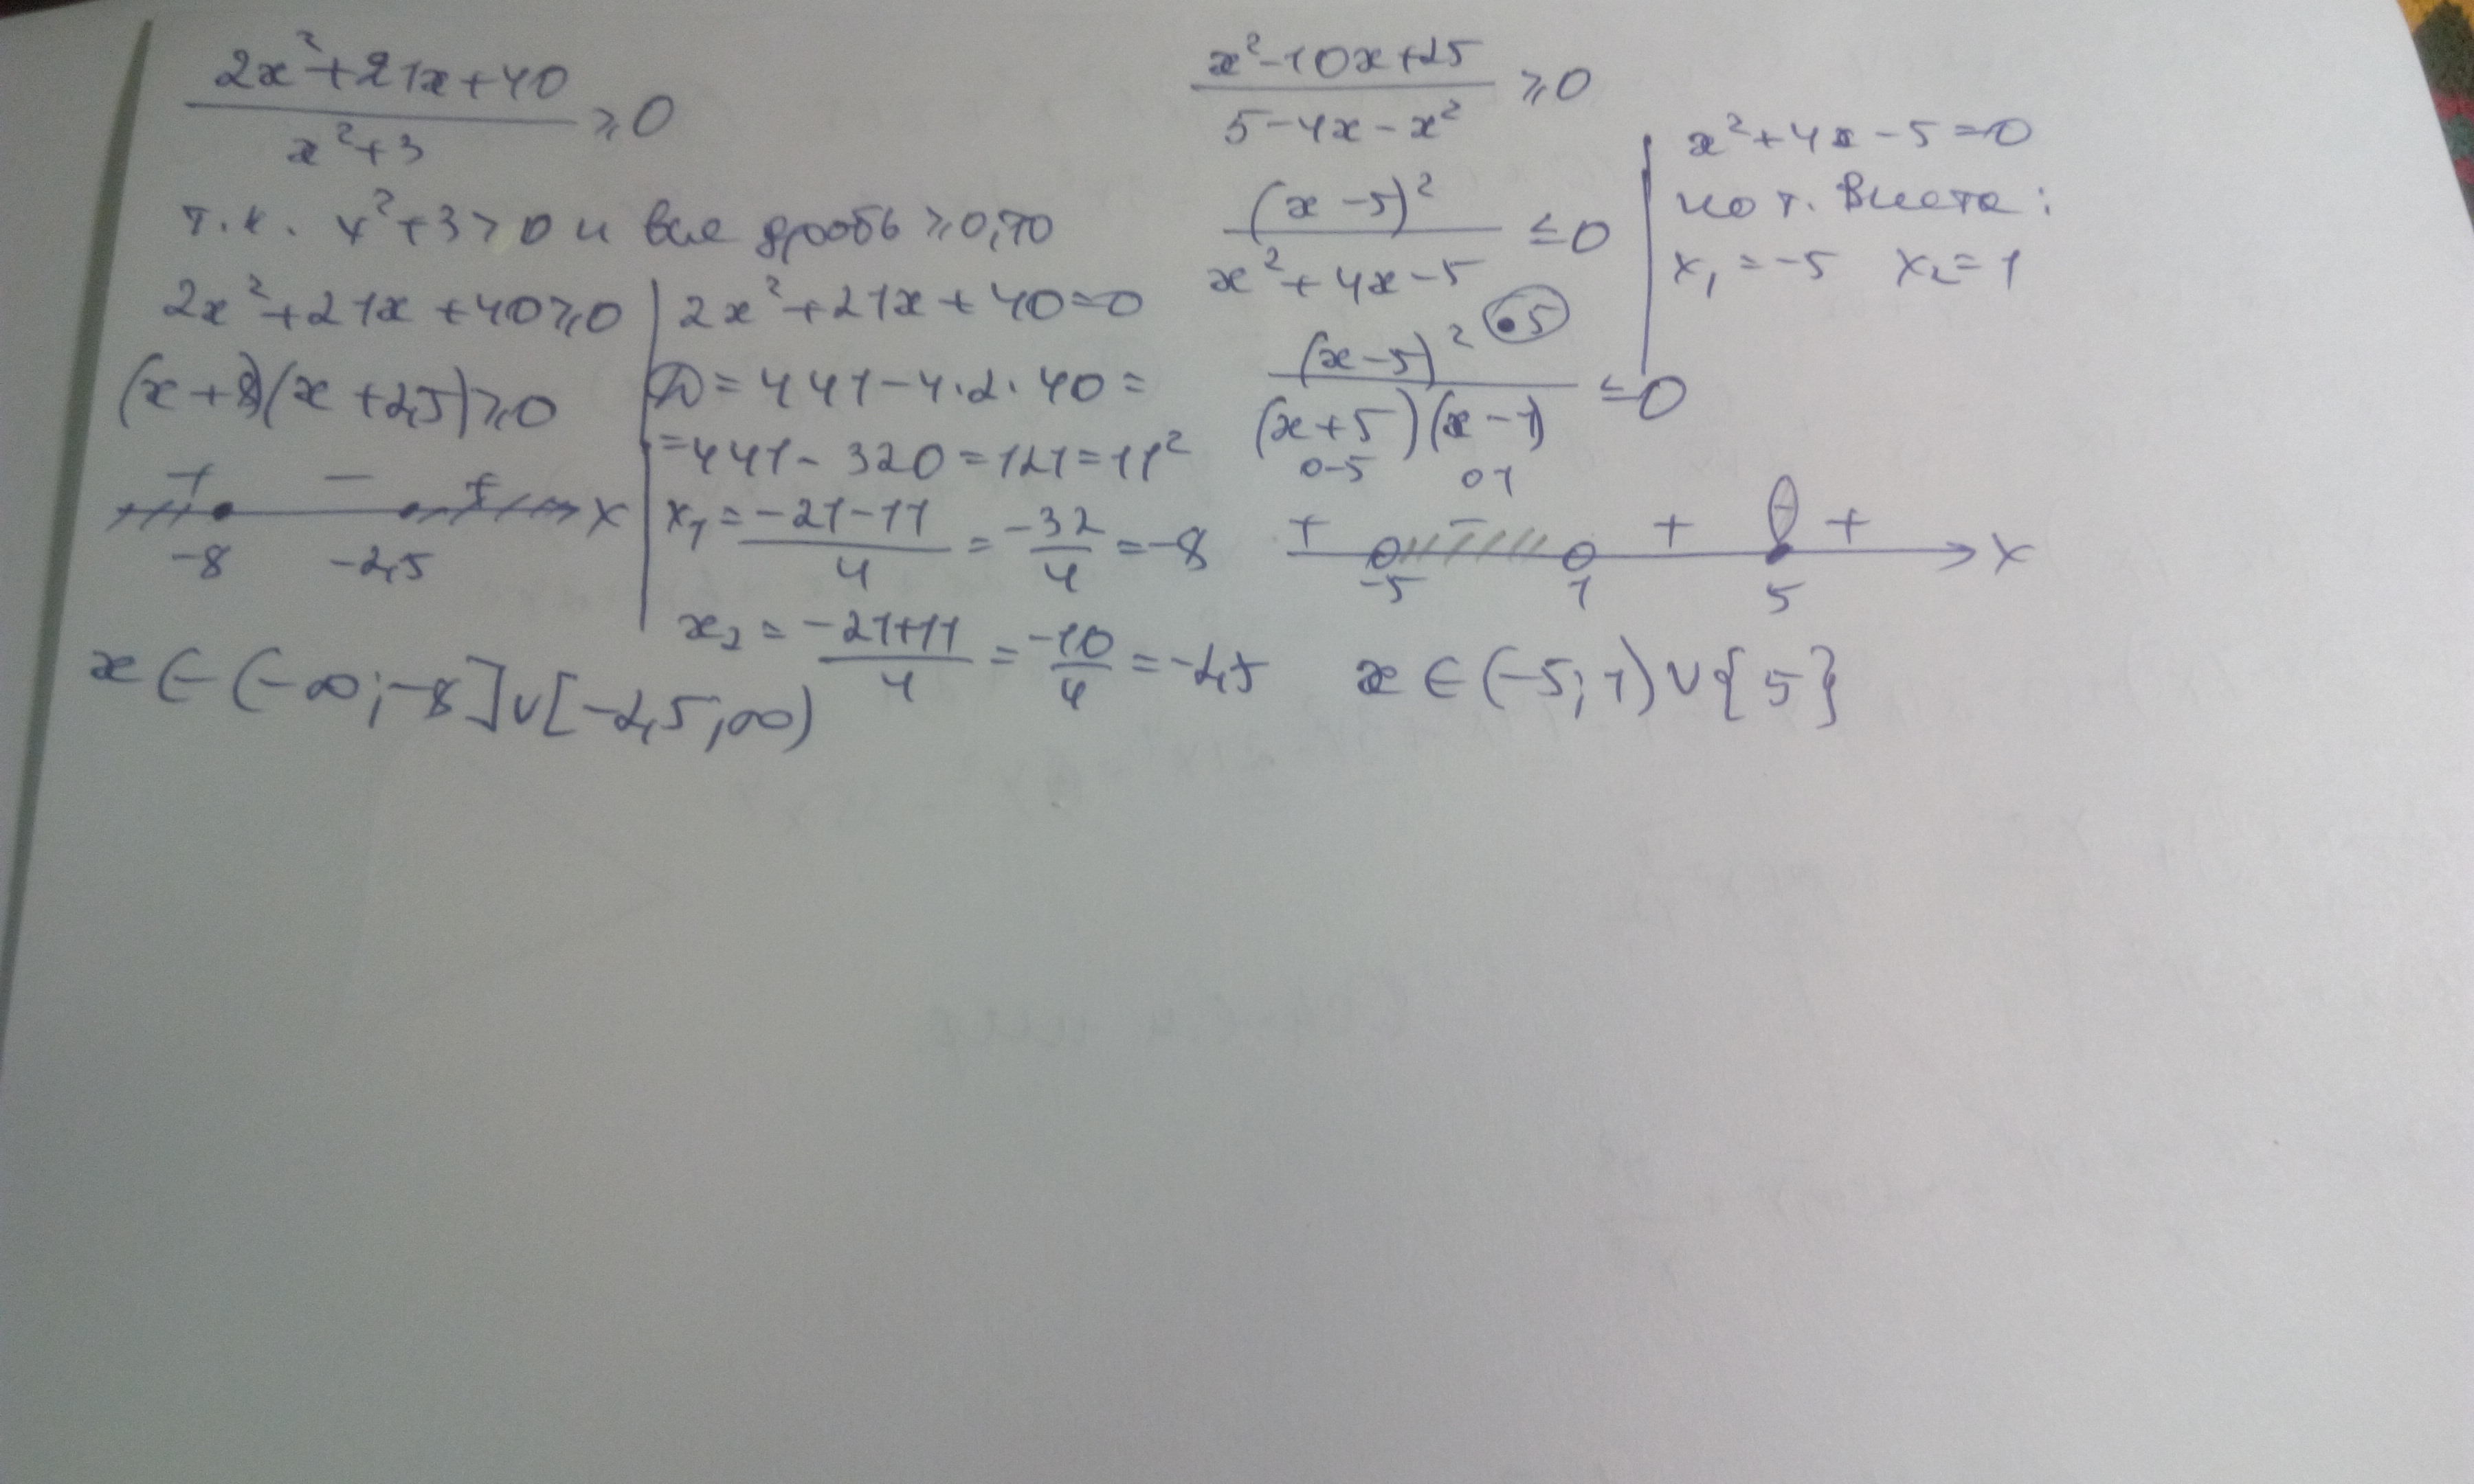 (2x²+21x+40)/(x²+3) ≥0
т.к. x²+3>0 и вся дробь ≥0, то
2x²+21x+40≥0
(x+8)(x+2,5)≥0
+ − + x
-8 -2,5
x∈(-∞;-8]∪[-2,5;∞)
2x²+21x+40=0
D=441-4·2·40=
=441-320=121=11²
x₁=(-21-11)/4=-32/4=-8
x₂=(-21+11)/4=-10/4=-2,5
(x²-10x+25)/(5-4x-x²) ≥0
(x-5)²/(x²+4x-5) ≤0
•5
(x-5)²/((x+5)(x-1)) ≤0
○-5 ○1
+ − + − + x
-5 1 5
x∈(-5;1)∪{5}
x²+4x-5=0
по т. Виета:
x₁=-5 x₂=1